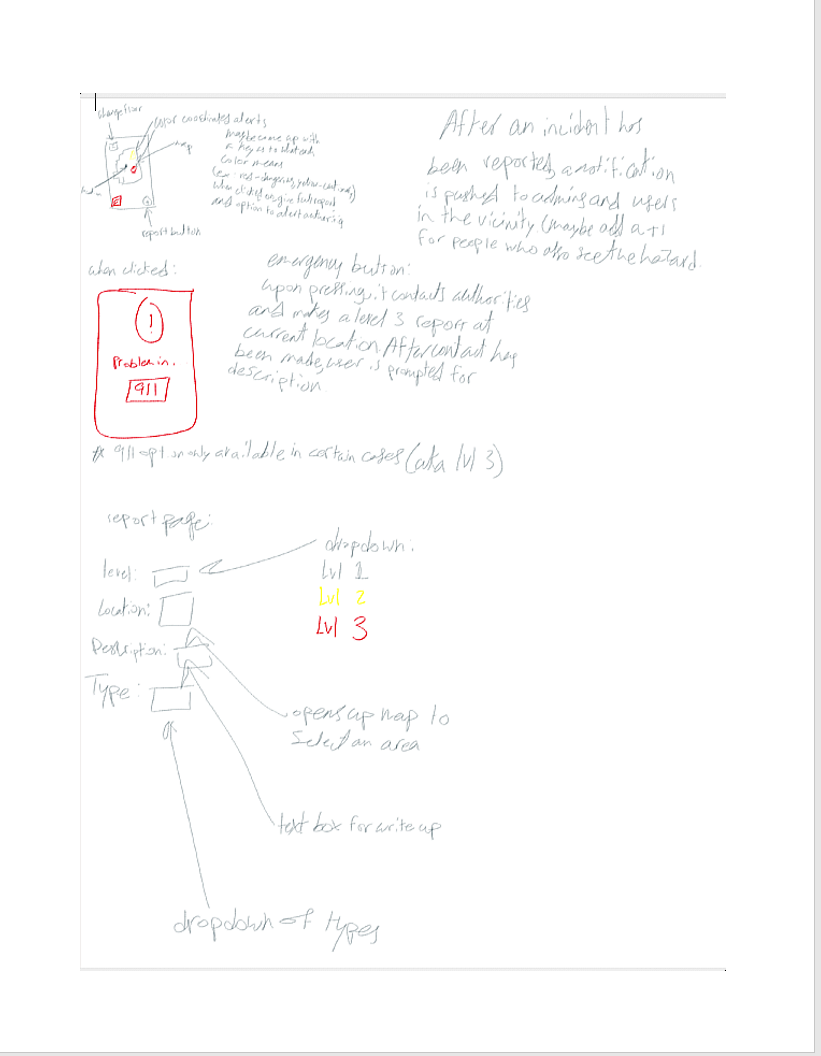 change floor
color coordinated alerts
map
maybe come up with
a key as to what each
color means
(ex: red-dangerous, yellow-cautious)
when clicked on give full report
and option to alert authority
report button
After an incident has
been reported, a notification
is pushed to admins and users
in the vicinity (maybe add a +1
for people who also see the hazard.
when clicked:
!
Problem in.
911
emergency button:
upon pressing, it contacts authorities
and makes a level 3 report at
current location. After contact has
been made, user is prompted for
description
* 911 option only available in certain cases (aka lvl 3)
report page:
level:
Location:
Description:
Type:
dropdown:
Lvl 1
Lvl 2
Lvl 3
opens up map to
Select an area
text box for write up
dropdown of types